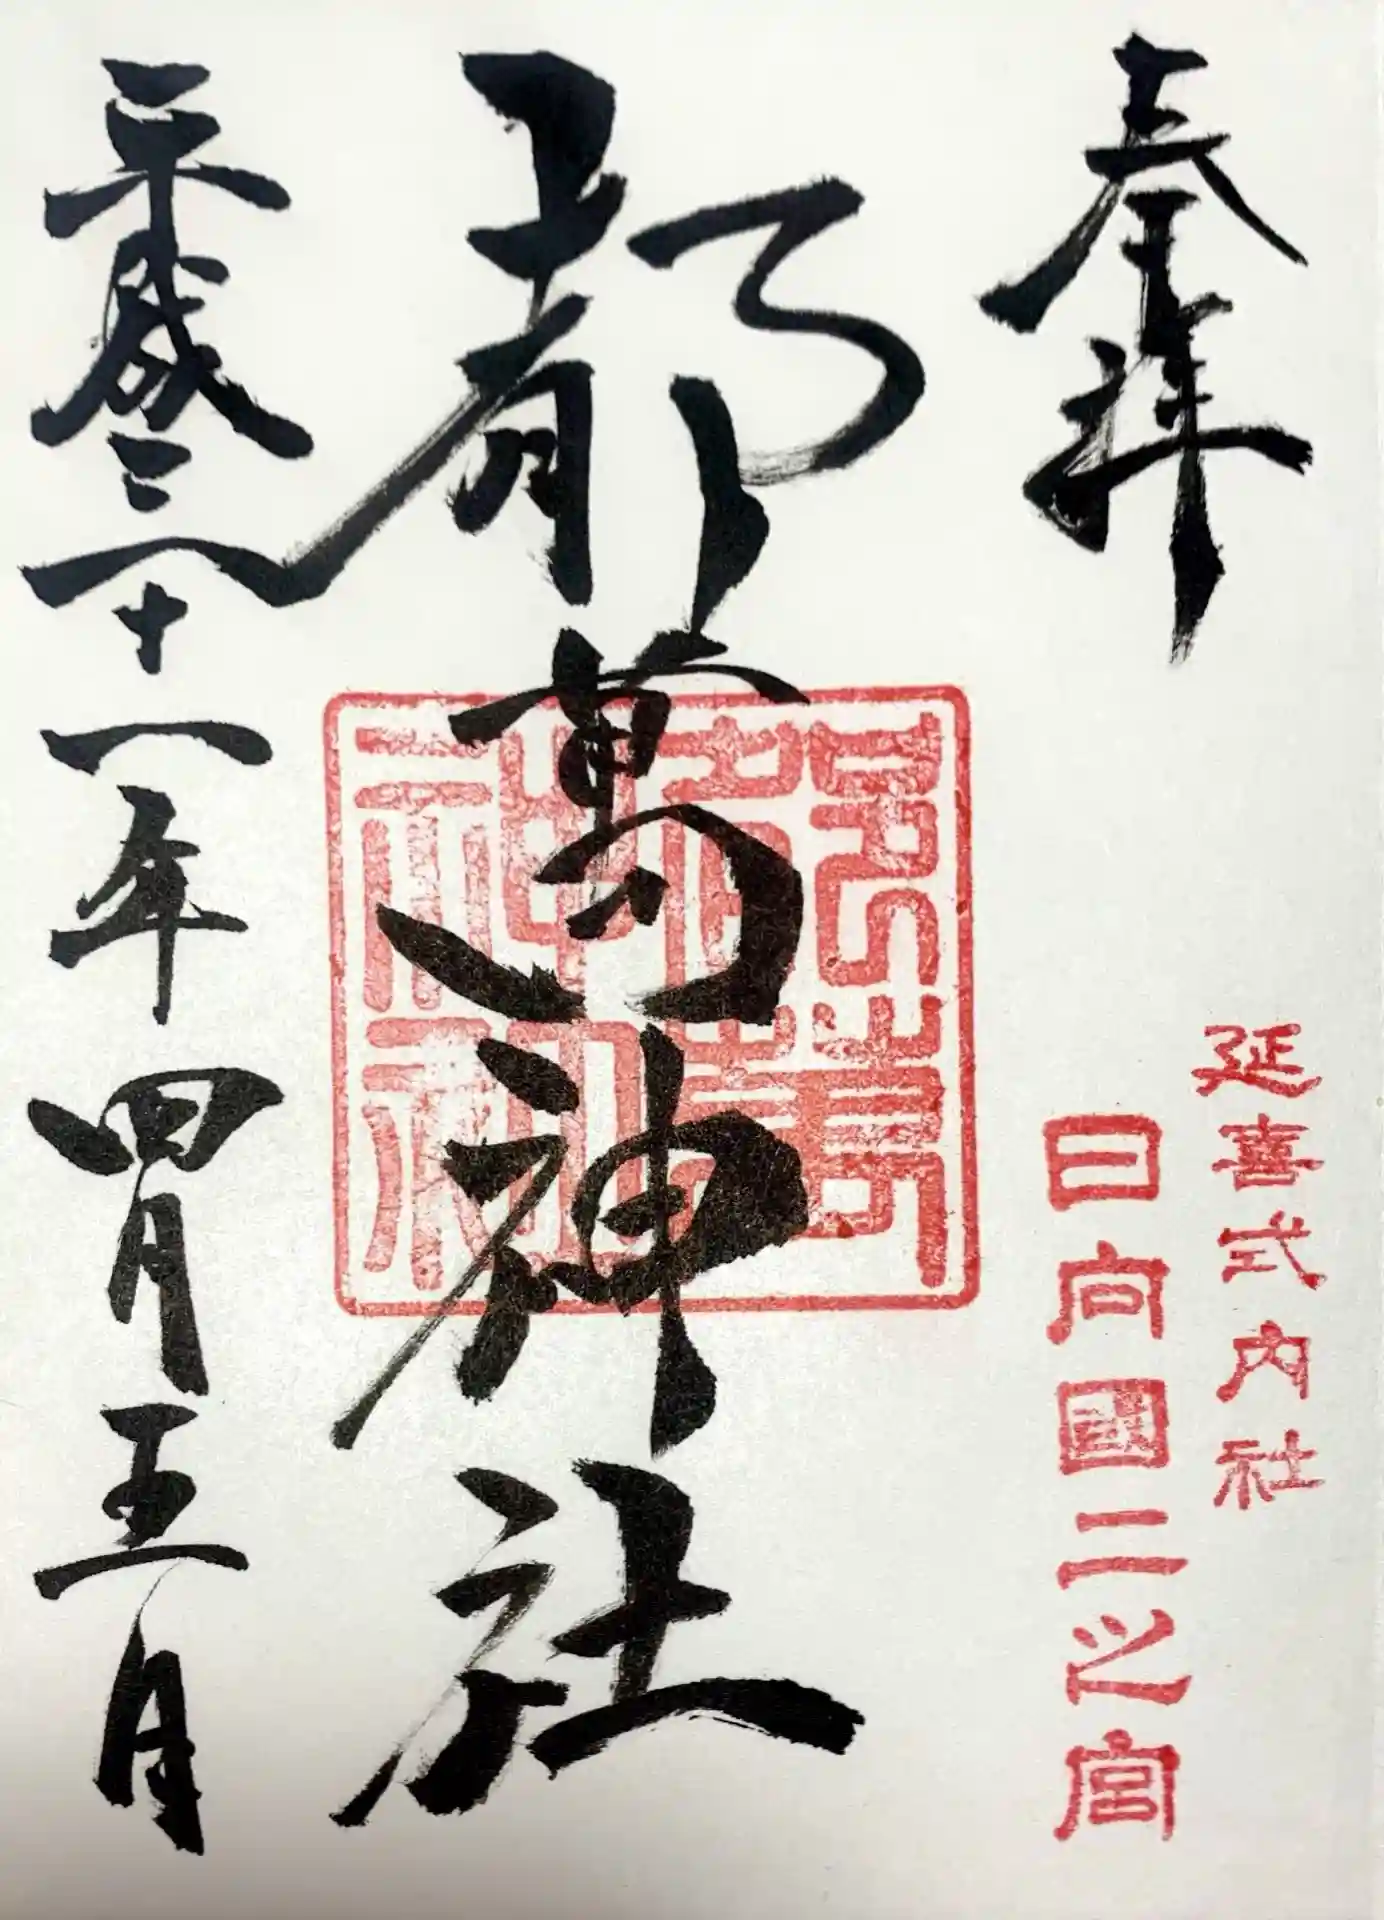 奉拝
延喜式内社
日向國二之宮
都萬神社
平成三十一年四月五日